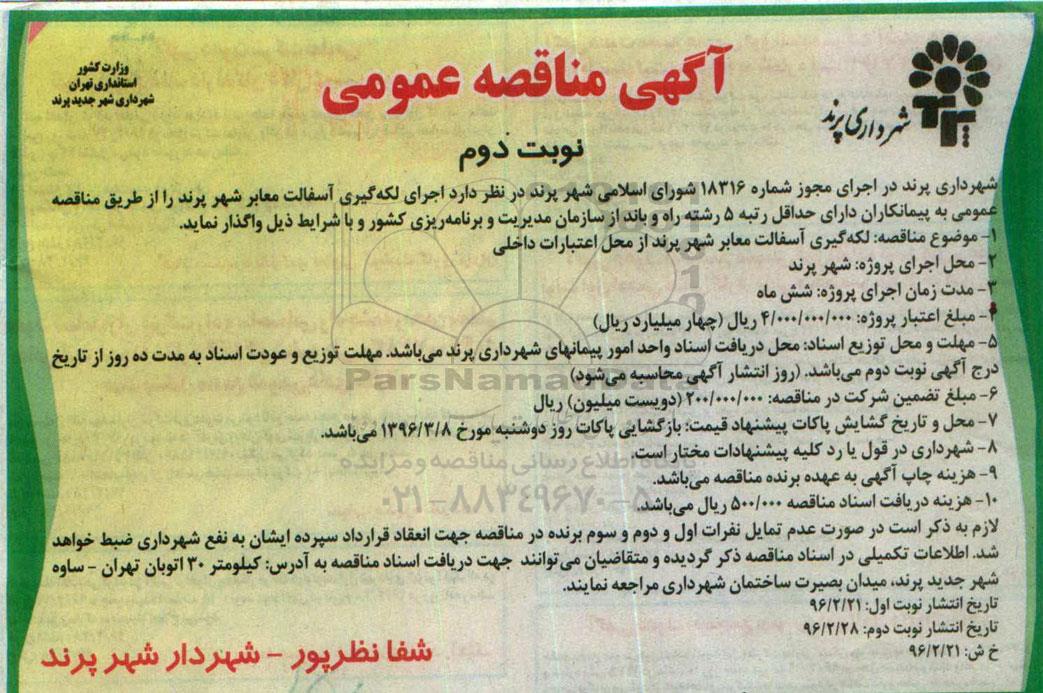 آگهی مناقصه عمومی
نوبت دوم
وزارت کشور
استانداری تهران
شهرداری شهر جدید پرند
شهرداری پرند
شهرداری پرند در اجرای مجوز شماره ۱۸۳۱۶ شورای اسلامی شهر پرند در نظر دارد اجرای لکه‌گیری آسفالت معابر شهر پرند را از طریق مناقصه
عمومی به پیمانکاران دارای حداقل رتبه ۵ رشته راه و باند از سازمان مدیریت و برنامه‌ریزی کشور و با شرایط ذیل واگذار نماید.
۱- موضوع مناقصه: لکه‌گیری آسفالت معابر شهر پرند از محل اعتبارات داخلی
۲- محل اجرای پروژه: شهر پرند
۳- مدت زمان اجرای پروژه: شش ماه
۴- مبلغ اعتبار پروژه: ۴/۰۰۰/۰۰۰/۰۰۰ ریال (چهار میلیارد ریال)
۵- مهلت و محل توزیع اسناد: محل دریافت اسناد واحد امور پیمانهای شهرداری پرند می‌باشد. مهلت توزیع و عودت اسناد به مدت ده روز از تاریخ
درج آگهی نوبت دوم می‌باشد. (روز انتشار آگهی محاسبه می‌شود)
۶- مبلغ تضمین شرکت در مناقصه: ۲۰۰/۰۰۰/۰۰۰ (دویست میلیون) ریال
۷- محل و تاریخ گشایش پاکات پیشنهاد قیمت: بازگشایی پاکات روز دوشنبه مورخ ۱۳۹۶/۳/۸ می‌باشد.
۸- شهرداری در قول یا رد کلیه پیشنهادات مختار است.
۹- هزینه چاپ آگهی به عهده برنده مناقصه می‌باشد.
۱۰- هزینه دریافت اسناد مناقصه ۵۰۰/۰۰۰ ریال می‌باشد.
لازم به ذکر است در صورت عدم تمایل نفرات اول و دوم و سوم برنده در مناقصه جهت انعقاد قرارداد سپرده ایشان به نفع شهرداری ضبط خواهد
شد. اطلاعات تکمیلی در اسناد مناقصه ذکر گردیده و متقاضیان می‌توانند جهت دریافت اسناد مناقصه به آدرس: کیلومتر ۳۰ اتوبان تهران - ساوه
شهر جدید پرند، میدان بصیرت ساختمان شهرداری مراجعه نمایند.
تاریخ انتشار نوبت اول: ۹۶/۲/۲۱
تاریخ انتشار نوبت دوم: ۹۶/۲/۲۸
خ ش: ۹۶/۲/۲۱
شفا نظرپور - شهردار شهر پرند
ParsNamadData
پایگاه اطلاع رسانی مناقصه و مزایده
۰۲۱-۸۸۳۴۹۶۷۰-۵